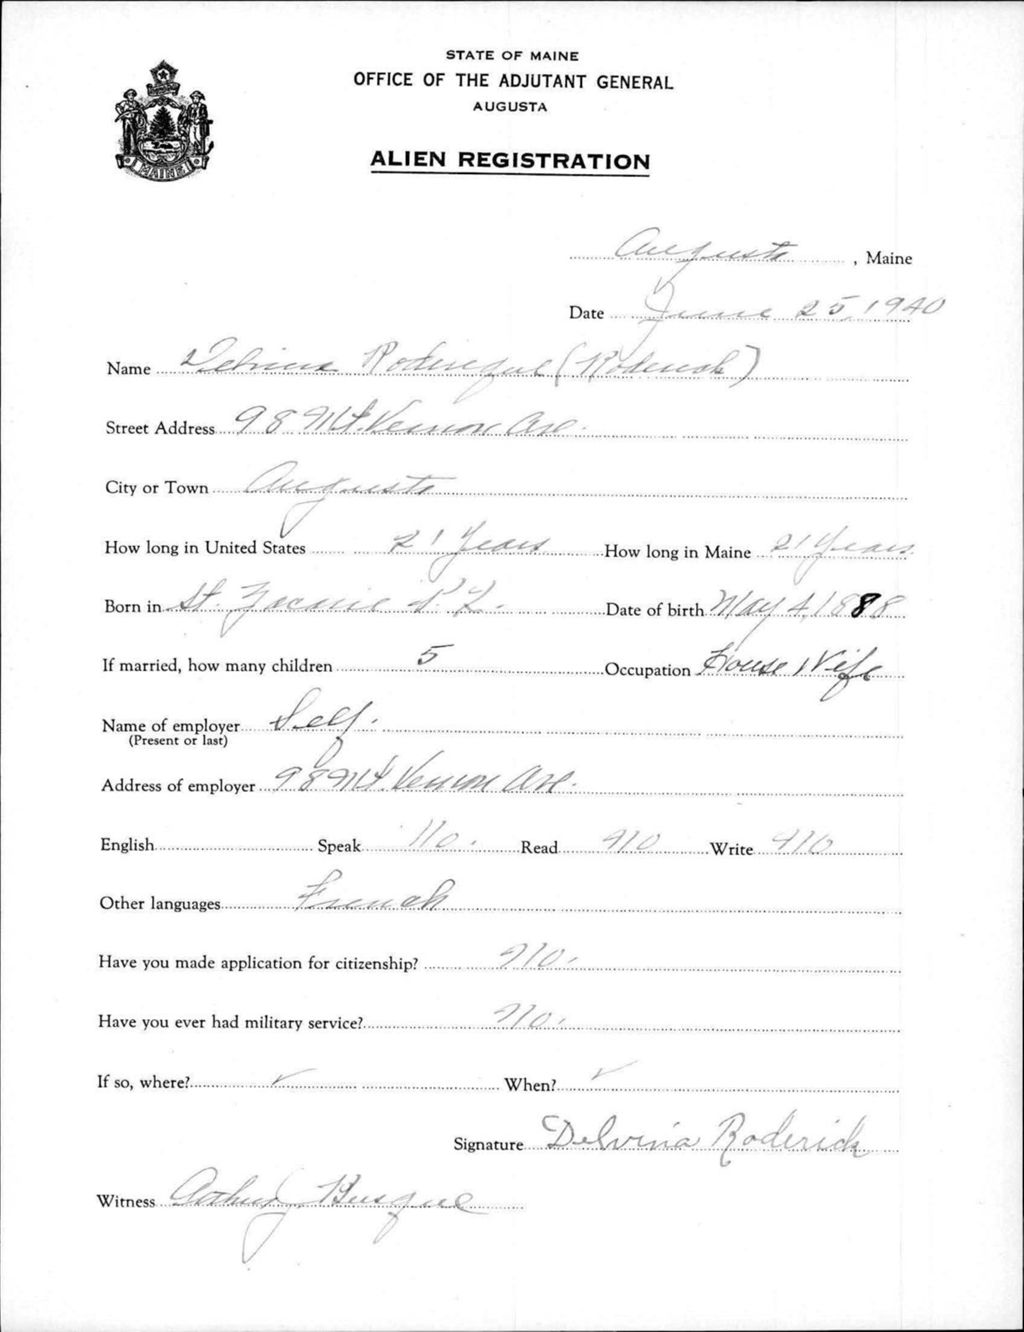 STATE OF MAINE
OFFICE OF THE ADJUTANT GENERAL
AUGUSTA
ALIEN REGISTRATION
MAINE
Augusta, Maine
Date June 25, 1940
Name Delvina Roderique (Roderick)
Street Address 98 Mt. Vernon Ave.
City or Town Augusta
How long in United States 21 Years How long in Maine 21 Years
Born in St. Zacarie P. Q. Date of birth May 4, 1888
If married, how many children 5 Occupation House Wife
Name of employer Self.
(Present or last)
Address of employer 98 Mt. Vernon Ave.
English Speak No. Read No Write No
Other languages French
Have you made application for citizenship? No.
Have you ever had military service? No.
If so, where? ✓ When? ✓
Signature Delvina Roderick
Witness Arthur J. Busque